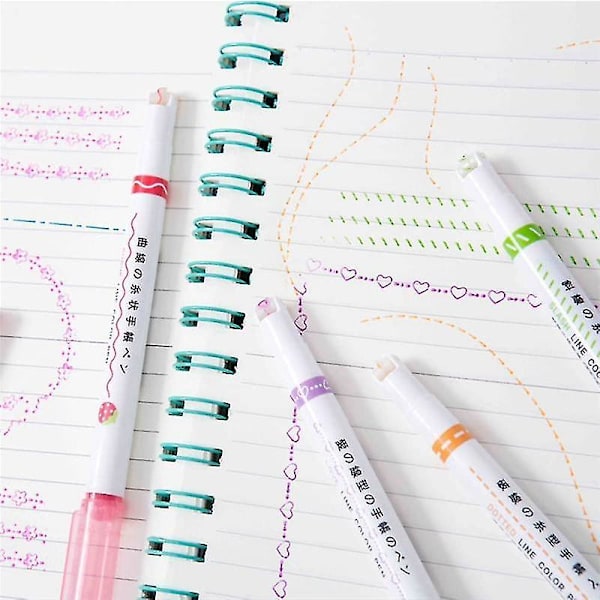 曲線の糸状手帳ペン
型の手帳のペン
LINE COLOR PEN
線の糸型手帳ペ
DOTTED LINE COLOR P
斜線の糸
LINE COLO